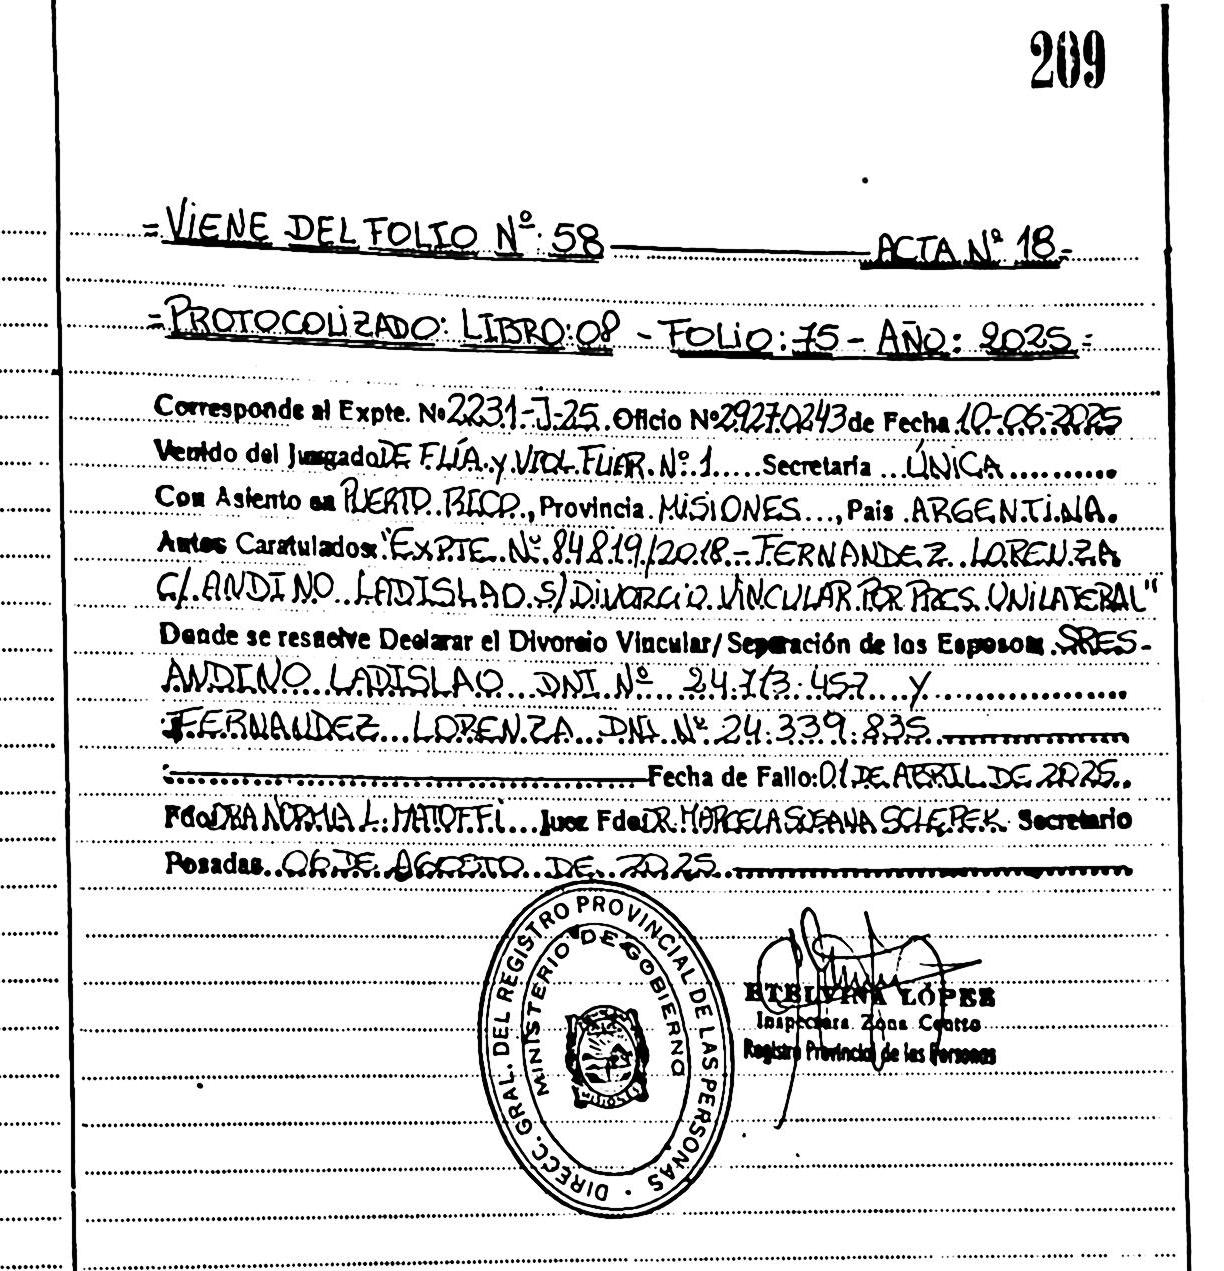 209
=VIENE DEL FOLIO Nº: 58 ACTA Nº 18.-
=PROTOCOLIZADO: LIBRO: 08 - FOLIO: 75 - AÑO: 2025=
Corresponde al Expte. Nº 2231-J-25. Oficio Nº 29270243 de Fecha 10-06-2025
Venido del Juzgado DE FLÍA. y VIOL. FLIAR. Nº 1..... Secretaría ...ÚNICA..........
Con Asiento en PUERTO RICO., Provincia MISIONES..., Pais .ARGENTINA.
Autos Caratulados: "EXPTE. Nº 84819/2018.- FERNANDEZ LORENZA
C/ ANDINO LADISLAO S/ DIVORCIO VINCULAR POR PRES. UNILATERAL"
Donde se resuelve Declarar el Divorcio Vincular/ Separación de los Esposos: SRES-
ANDINO LADISLAO DNI Nº 24.713.457 Y
FERNANDEZ LORENZA DNI Nº 24.339.835
Fecha de Fallo: 01 DE ABRIL DE 2025..
Fdo DRA NORMA L. MATOFFI... Juez Fdo DR. MARCELA SUSANA SCLEPEK. Secretario
Posadas 06 DE AGOSTO DE 2025
DIRECC. GRAL. DEL REGISTRO PROVINCIAL DE LAS PERSONAS
MINISTERIO DE GOBIERNO
ETELVINA LÓPEZ
Inspectora Zona Centro
Registro Provincial de las Personas